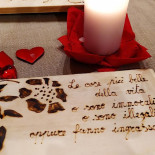 Le cose più belle
della vita
o sono immorali
o sono illegali
oppure fanno ingrassare